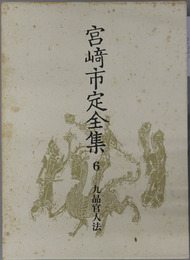 宮﨑市定全集
6
九品官人法